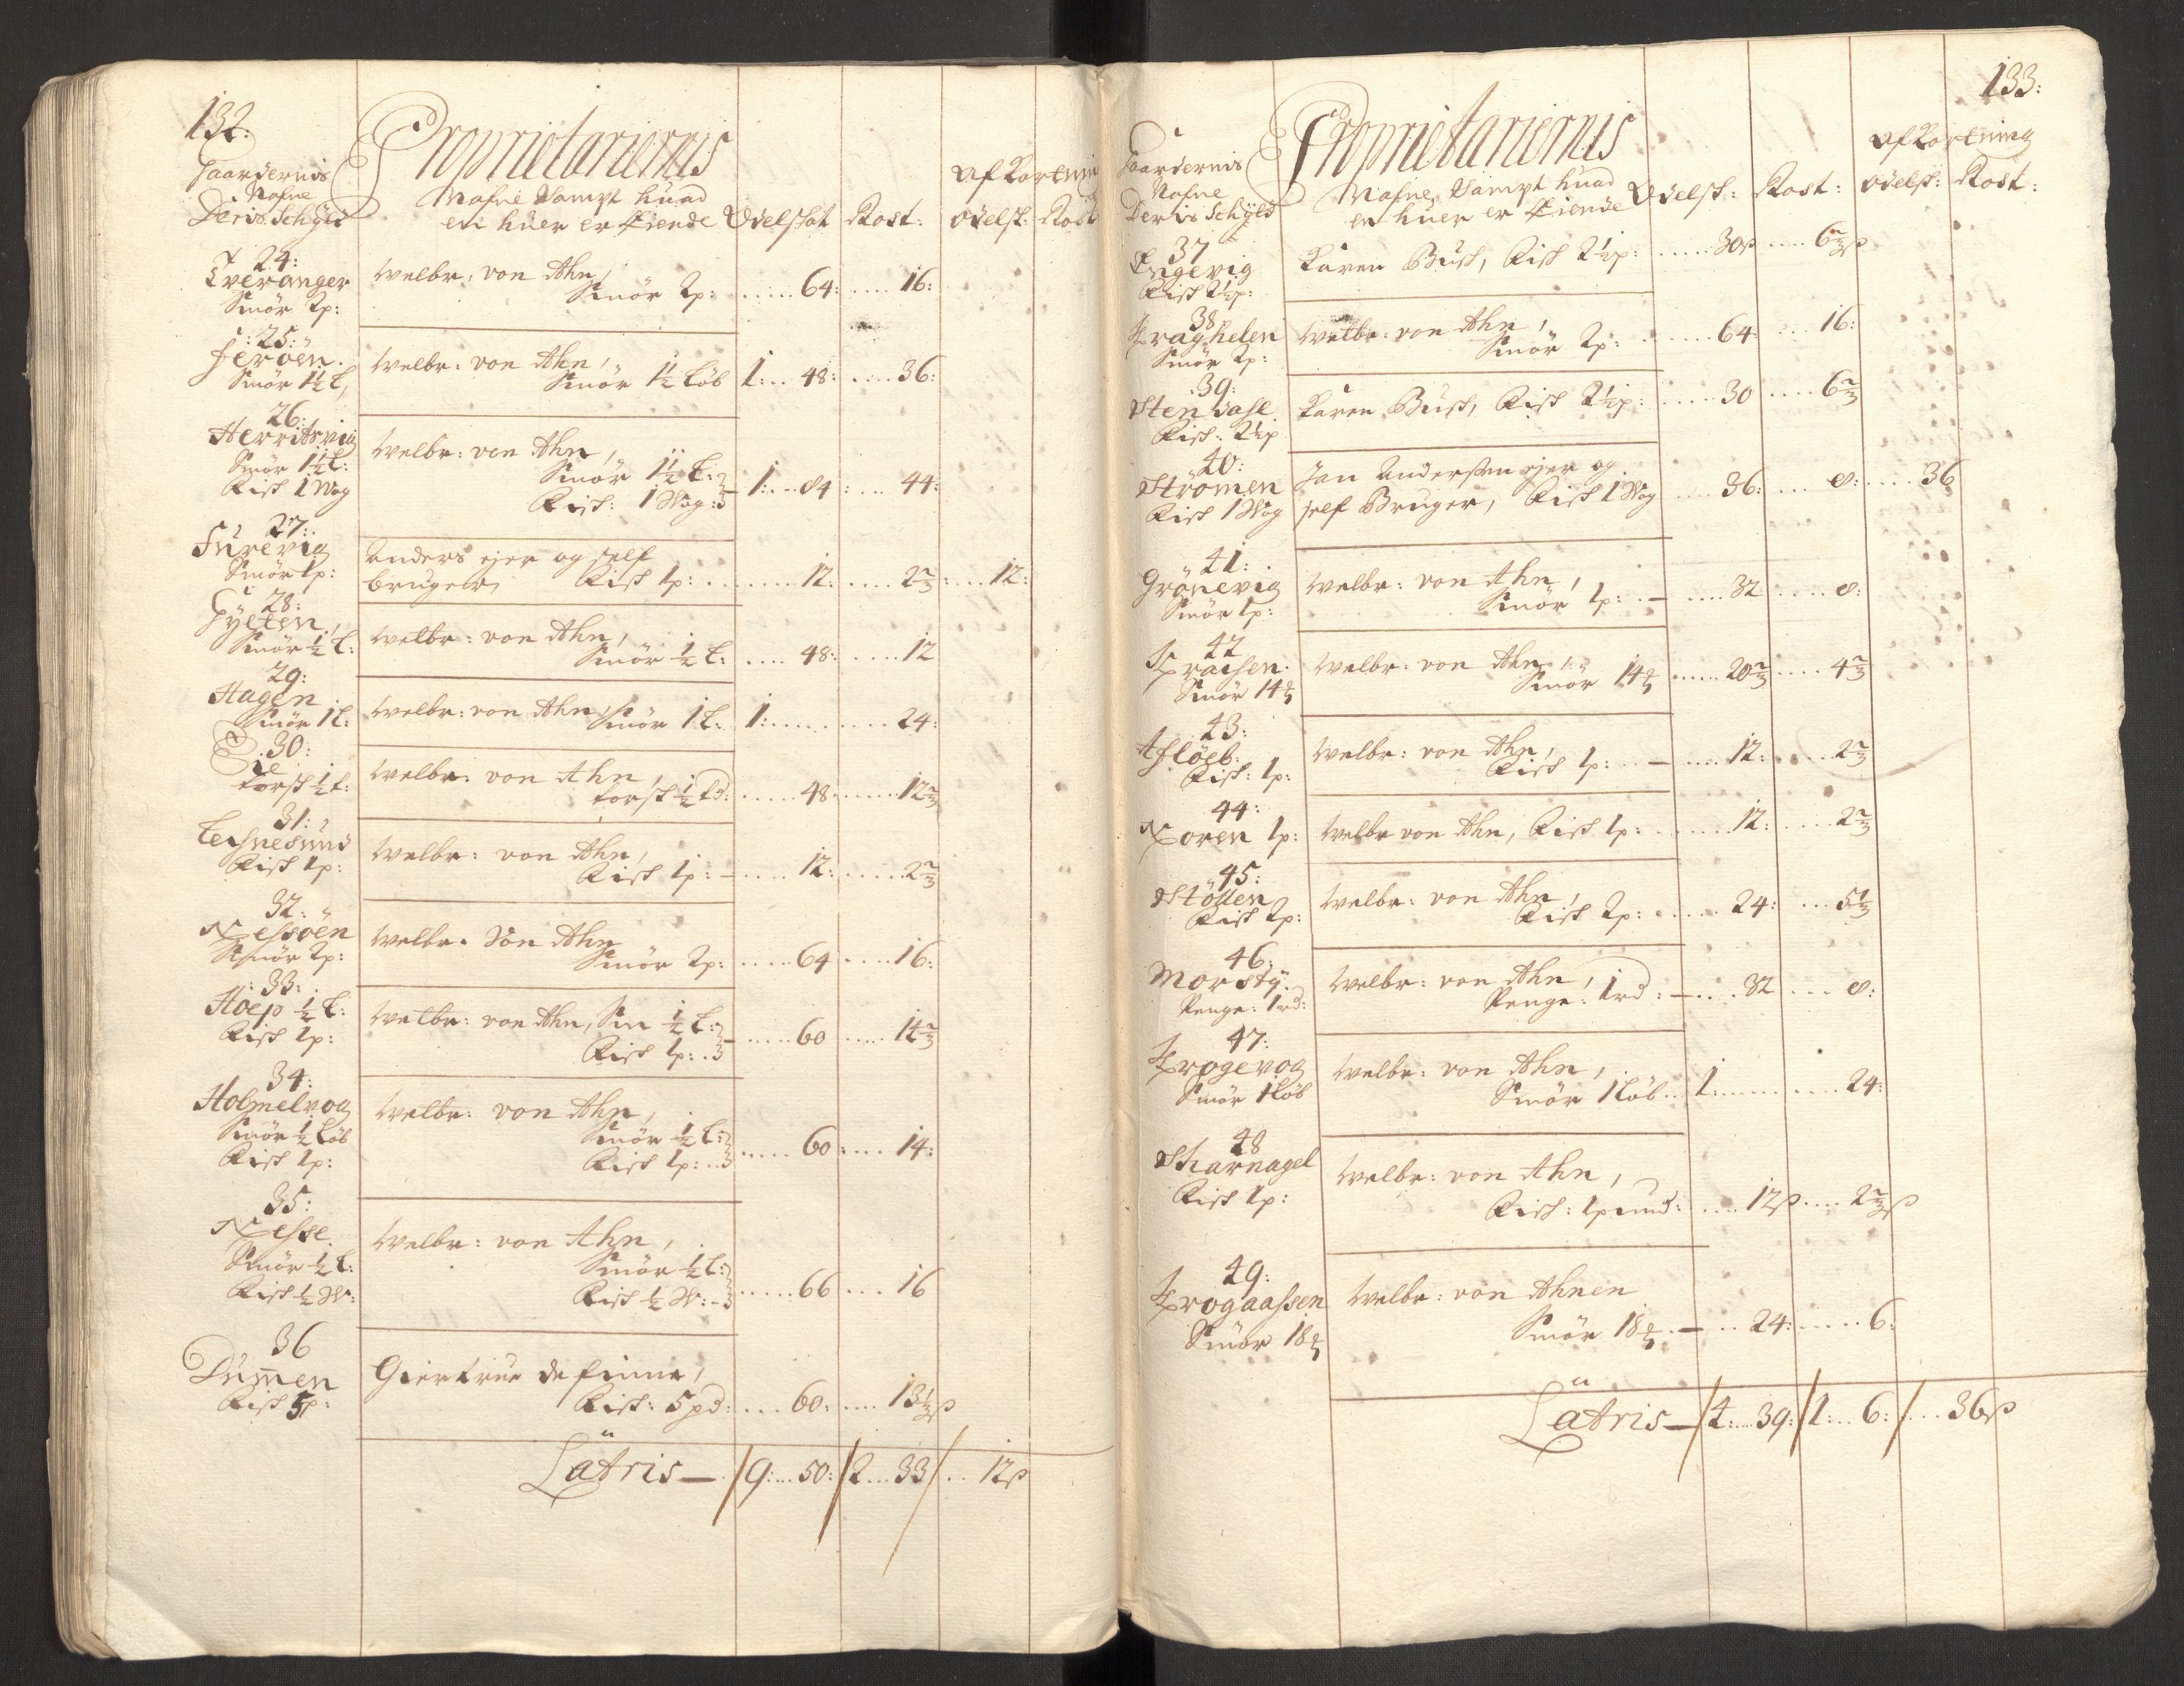 132:
Gaardernis
Nafne
Deris Schyld
Proprietariernis
Nafne Sampt huad
en huer er Eiende
Odelskat
Rost:
Afkortning
Odelsk:
Rost
24:
Tveranger
Smör 2p:
Welbr: von Ahn,
Smör 2p: ..... 64: .... 16:
25:
Jeröen.
Smör 1½ L,
Welbr: von Ahn,
Smör 1½ Löb 1: .. 48: .... 36:
26:
Herritsvig
Smör 1½ L:
Fisk 1 Wog
Welbr: von Ahn,
Smör 1½ L:
Fisk: 1 Wog: 1: .. 84: ... 44:
27:
Furevig
Smör 1p:
Anders ejer og self
bruger, Fisk 1p: ...... 12: .... 2⅔: ... 12:
28:
Gylten,
Smör ½ L:
Welbr: von Ahn,
Smör ½ L: .... 48: .... 12
29:
Hagen
Smör 1 L:
Welbr: von Ahn, Smör 1 L: 1: ........ 24:
30:
Torsk ½ t:
Welbr: von Ahn,
Torsk ½ td: ..... 48: ..... 12⅔
31:
Lersnesund
Fisk 1p:
Welbr: von Ahn,
Fisk 1p: ..... 12: ..... 2⅔
32:
Nessöen
Smör 2p:
Welbr. von Ahn
Smör 2p: ..... 64 .... 16:
33:
Höep ½ L:
Fisk 1p:
Welbr: von Ahn, Sm ½ L:
Fisk 1p: ..... 60 ..... 14⅔
34:
Holmelvog
Smör ½ Löb
Fisk 1p:
Welbr: von Ahn,
Smör ½ L:
Fisk 1p: ..... 60: ... 14:
35:
Nesse.
Smör ½ L:
Fisk ½ W:
Welbr: von Ahn,
Smör ½ L:
Fisk ½ W: ..... 66 ... 16
36
Dummen
Fisk 5p:
Giertrue de finne,
Fisk: 5 pd: .... 60: .... 13⅓ß
Latris — 9: ... 50: 2 ... 33 ... 12ß
133:
Gaardernis
Nafne
Deris Schyld
Proprietariernis
Nafne, Sampt huad
en huer er Eiende
Odelsk:
Rost:
Afkortning
Odelsk:
Rost:
37
Engevig
Fisk 2½p:
Karen Busk, Fisk 2½p: ..... 30ß .... 6⅔ß
38
Kraghelen
Smör 2p:
Welbr: von Ahn,
Smör 2p: ..... 64: ... 16:
39:
Stendahl
Fisk: 2½p
Karen Busk, Fisk 2½p: ..... 30 .... 6⅔
40:
Strömen
Fisk 1 Wog
Jan Anderssen ejer og
self Bruger, Fisk 1 Wog .... 36: .... 8: ..... 36
41:
Grönevig
Smör 1p:
Welbr: von Ahn,
Smör 1p: — .... 32 ..... 8:
42
Smör 14
Welbr: von Ahn,
Smör 14 ..... 20⅔ .... 4⅔
43:
Fisk: 1p:
Welbr: von Ahn,
Fisk 1p: — .... 12: .... 2⅔
44:
Noren 1p:
Welbr von Ahn, Fisk 1p: ...... 12: .... 2⅔
45:
Stöllen
Fisk 2p:
Welbr: von Ahn,
Fisk 2p: ..... 24: ... 5⅓
46:
Morsty.
Penge: 1 rd:
Welbr: von Ahn,
Penge: 1 rd: — ... 32 .... 8:
47:
Krogevog
Smör 1 Löb
Welbr: von Ahn,
Smör 1 Löb .. 1: .......... 24:
48
Skarnagel
Fisk 1p:
Welbr: von Ahn,
Fisk: 1 pund: .... 12ß .... 2⅔ß
49:
Krogaassen
Smör 18
Welbr: von Ahnen
Smör 18 — .. 24: ..... 6:
Latris — 4: ... 39: 1: .. 6: ... 36ß